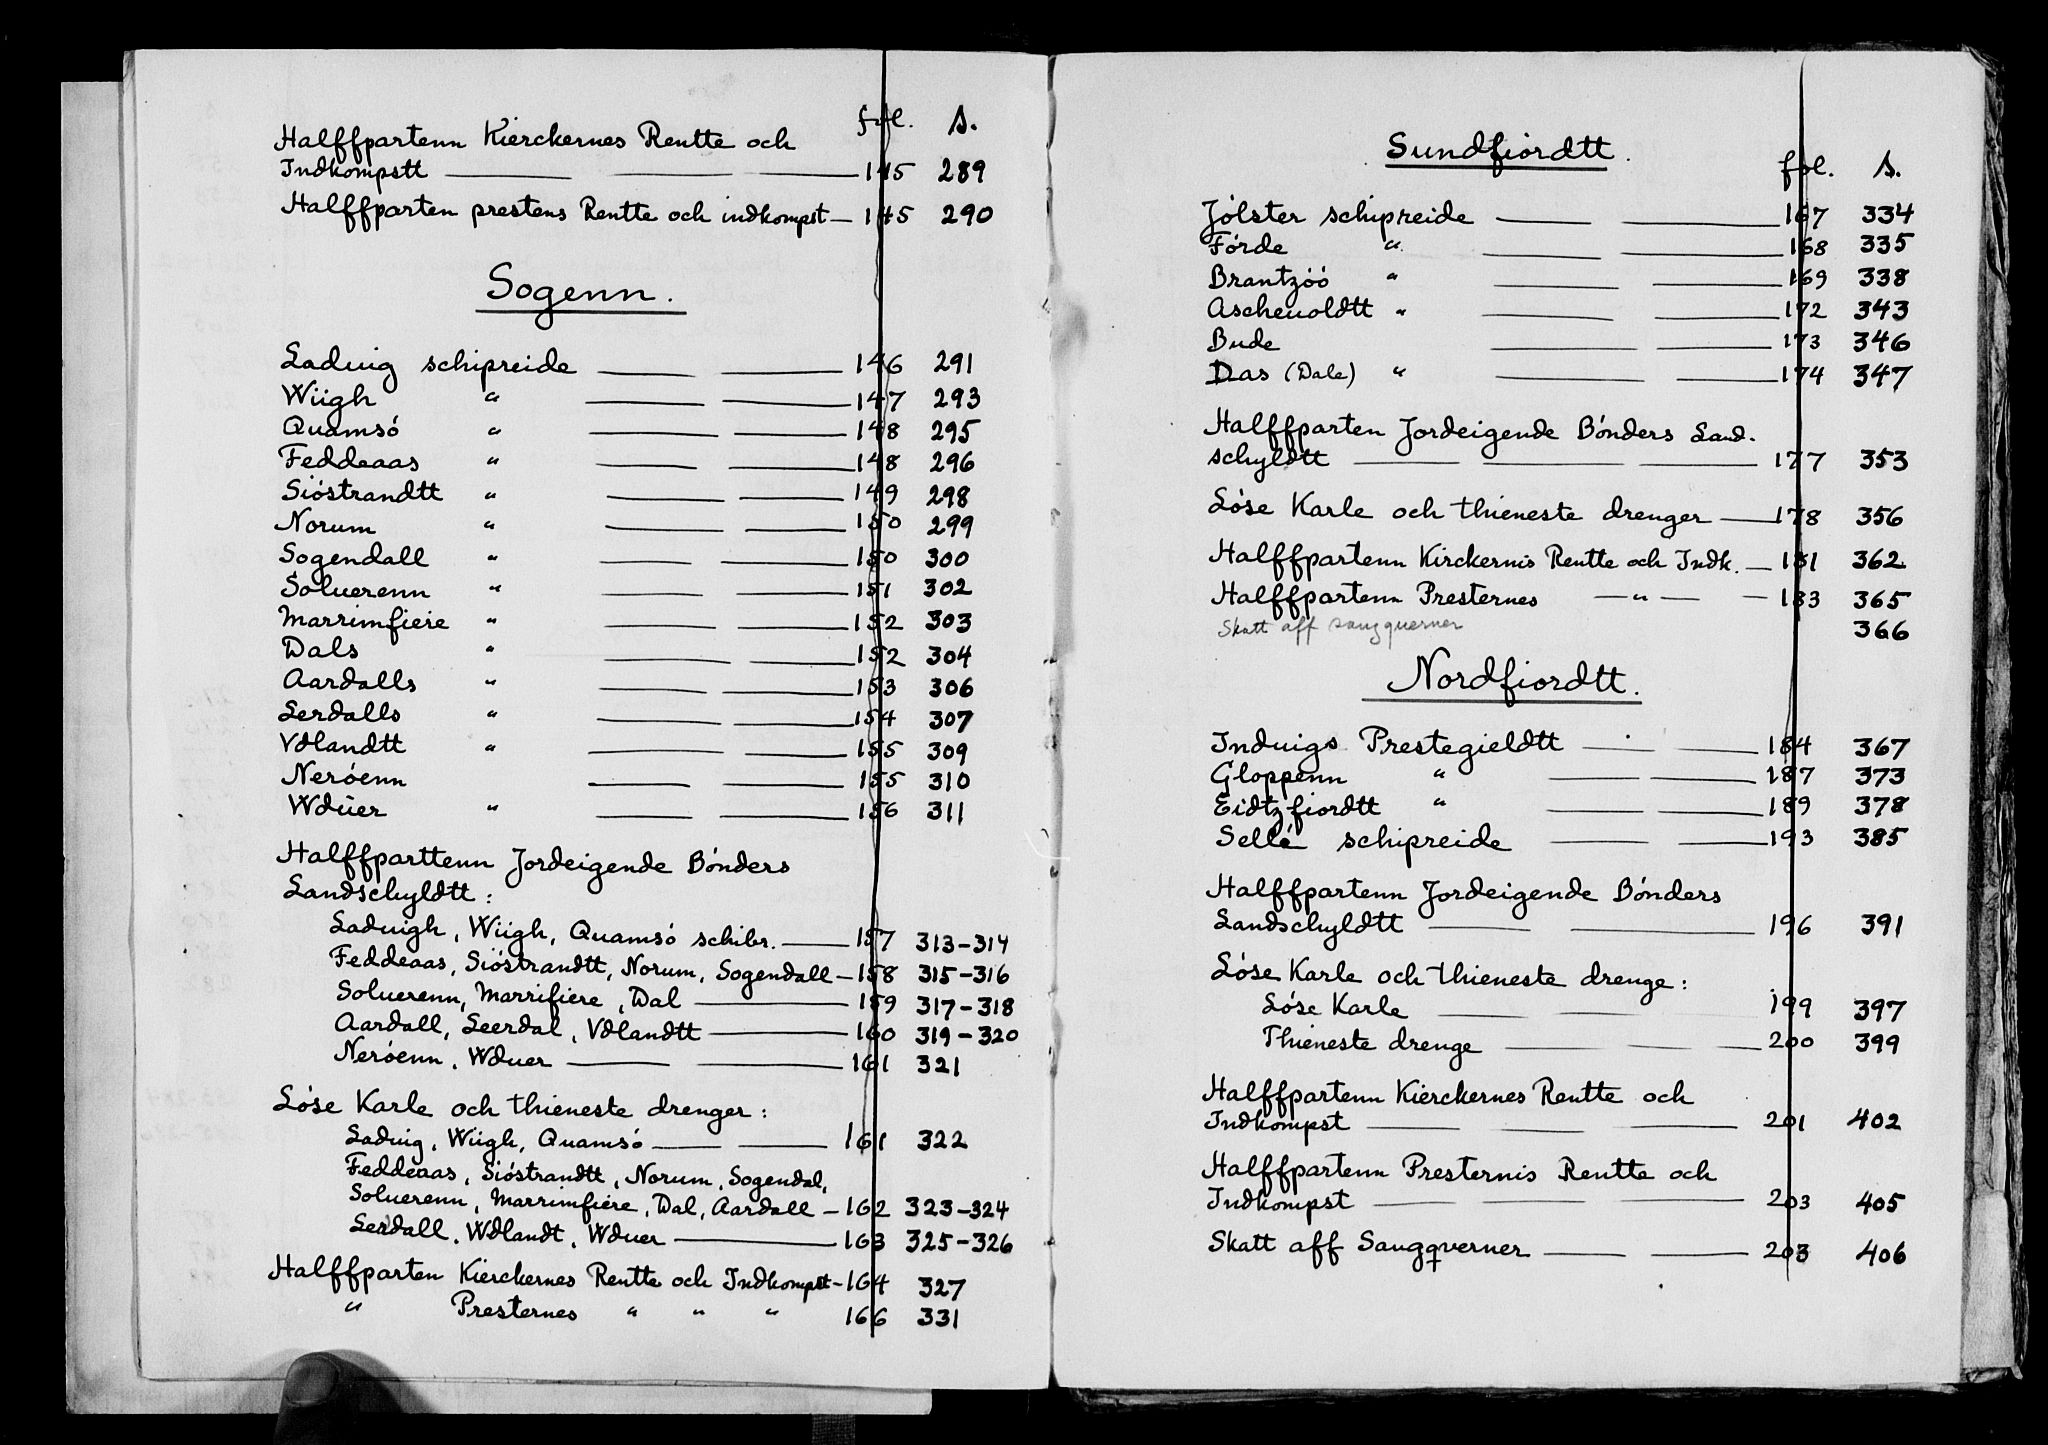 fol. s.
Halffpartenn Kierckernes Rentte och
Indkompstt — 145 289
Halffparten prestens Rentte och indkompst — 145 290
Sogenn.
Laduig schipreide — 146 291
Wiigh " — 147 293
Quamsó " — 148 295
Feddeaas " — 148 296
Sióstrandtt " — 149 298
Norum " — 150 299
Sogendall " — 150 300
Soluerenn " — 151 302
Marrimfiere " — 152 303
Dals " — 152 304
Aardalls " — 153 306
Lerdalls " — 154 307
Vdlandtt " — 155 309
Neróenn — 155 310
Wdüer " — 156 311
Halffparttenn Jordeigende Bónders
Landschyldtt :
Laduigh, Wiigh, Quamsó schibr. — 157 313-314
Feddeaas, Sióstrandtt, Norum, Sogendall — 158 315-316
Soluerenn, Marrifiere, Dal — 159 317-318
Aardall, Leerdal, Vdlandtt — 160 319-320
Neróenn, Wduer — 161 321
Lóse Karle och thieneste drenger :
Laduig, Wiigh, Quamsó — 161 322
Feddeaas, Sióstrandtt, Norum, Sogendal,
Soluerenn, Marrimfiere, Dal, Aardall — 162 323-324
Lerdall, Wdlandt, Wduer — 163 325-326
Halffparten Kierckernes Rentte och Indkompst — 164 327
" Presternes " " " 166 331
Sundfiordtt.
fol. s.
Jólster schipreide — 167 334
Fórde " — 168 335
Brantzóó " — 169 338
Ascheuoldtt " — 172 343
Bude — 173 346
Das (Dale) " — 174 347
Halffparten Jordeigende Bónders Land-
schyldtt — 177 353
Lóse Karle och thieneste drenger — 178 356
Halffpartenn Kirckernis Rentte och Indk. — 181 362
Halffpartenn Presternes — " — — 183 365
Skatt aff saugquerner 366
Nordfiordtt.
Induigs Prestegieldtt — 184 367
Gloppenn " — 187 373
Eidtzfiordtt " — 189 378
Sellé schipreide — 193 385
Halffpartenn Jordeigende Bónders
Landschyldtt — 196 391
Lóse Karle och thieneste drenge :
Lóse Karle — 199 397
Thieneste drenge — 200 399
Halffpartenn Kierckernes Rentte och
Indkompst — 201 402
Halffpartenn Presternis Rentte och
Indkompst — 203 405
Skatt aff Saugqverner — 203 406